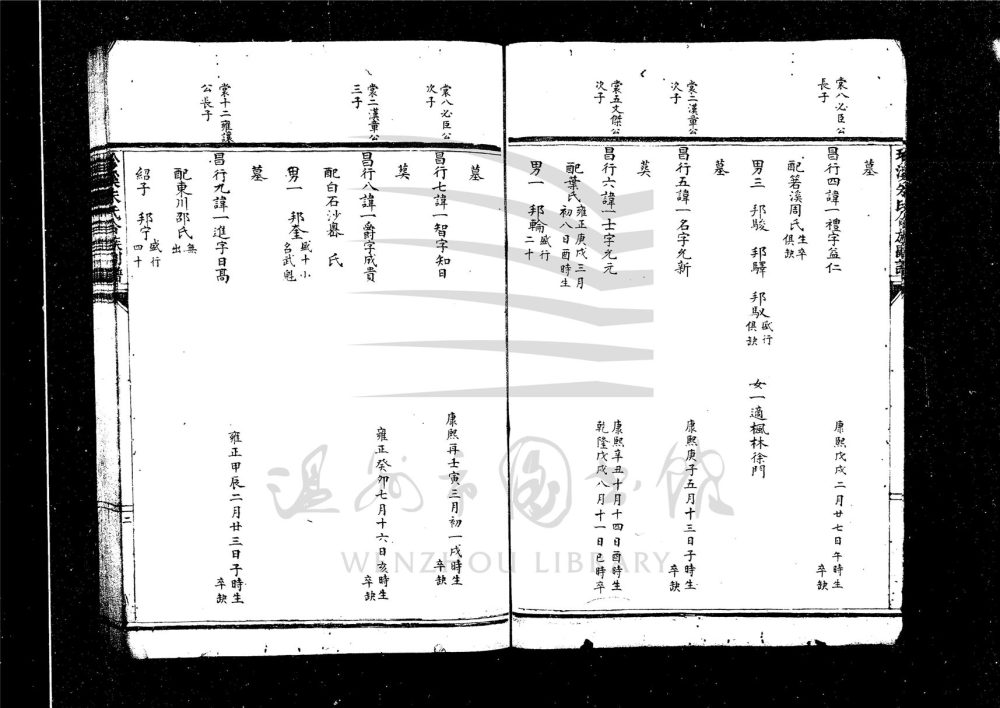 墓
棠八必臣公長子
昌行四諱一禮字益仁
康熙戊戌二月廿七日午時生
卒缺
配箬溪周氏生卒俱缺
男三 邦駿 邦驛 邦馭盛行俱缺 女一適楓林徐門
墓
棠二漢章公次子
昌行五諱一名字允新
康熙庚子五月十三日子時生
卒缺
墓
棠五文傑公次子
昌行六諱一士字允元
康熙辛丑十月十四日酉時生
乾隆戊戌八月十一日巳時卒
配葉氏雍正庚戌三月初八日酉時生
男一 邦輪盛行二十
墓
棠八必臣公次子
昌行七諱一智字知日
康熙再壬寅三月初一戌時生
卒缺
墓
棠二漢章公三子
昌行八諱一爵字成貴
雍正癸卯七月十六日亥時生
卒缺
配白石沙嶴 氏
男一 邦奎盛十小名武魁
墓
棠十二雍謨公長子
昌行九諱一進字日高
雍正甲辰二月廿三日子時生
卒缺
配東川邵氏無出
紹子 邦守盛行四十
二
溫州市圖書館
WENZHOU LIBRARY